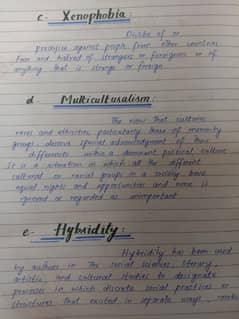 c- Xenophobia:
Dislike of or
prejudice against people from other countries.
Fear and hatred of strangers or foreigners or of
anything that is strange or foreign.
d. Multiculturalism:
The view that cultures,
races and ethnicities, particularly those of minority
groups, deserve special acknowledgment of their
differences within a dominant political culture.
It is a situation in which all the different
cultural or racial groups in a society have
equal rights and opportunities and none is
ignored or regarded as unimportant
e- Hybridity:
Hybridity has been used
by authors in The social sciences, literary,
artistic, and cultural studies to designate
processes in which discrete social practices or
structures, that existed in separate ways,